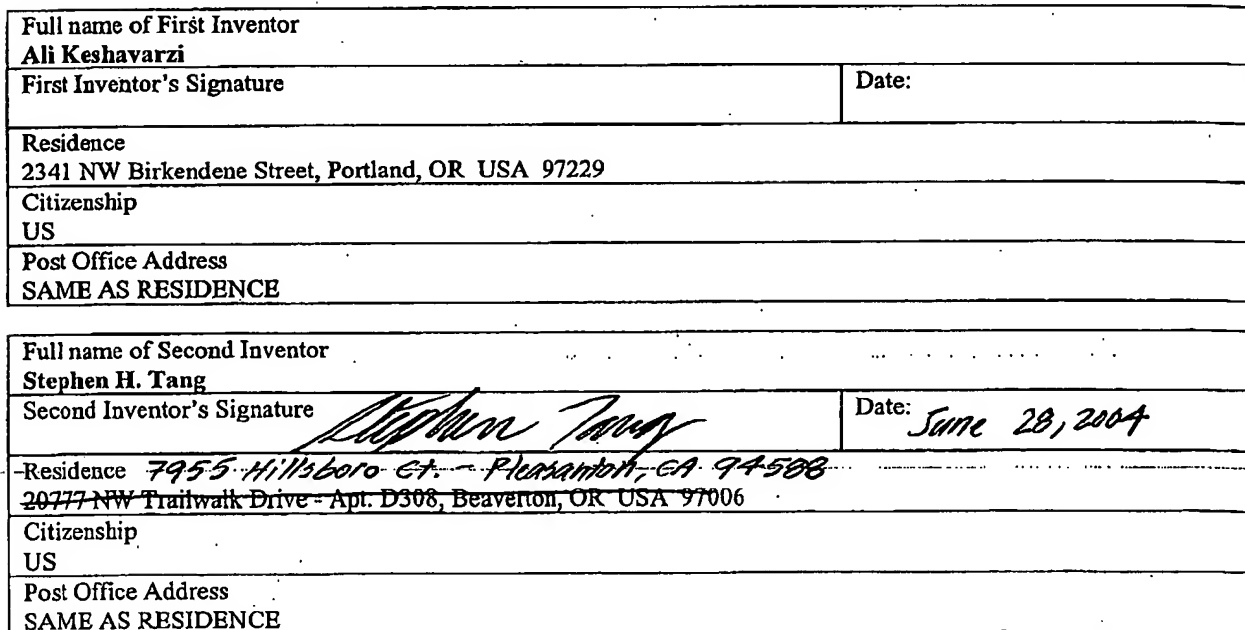 Full name of First Inventor
Ali Keshavarzi
First Inventor's Signature Date:
Residence
2341 NW Birkendene Street, Portland, OR USA 97229
Citizenship
US
Post Office Address
SAME AS RESIDENCE
Full name of Second Inventor
Stephen H. Tang
Second Inventor's Signature Stephen Tang Date: June 28, 2004
Residence 7955 Hillsboro Ct. - Pleasanton, CA 94588
20777 NW Trailwalk Drive - Apt. D308, Beaverton, OR USA 97006
Citizenship
US
Post Office Address
SAME AS RESIDENCE